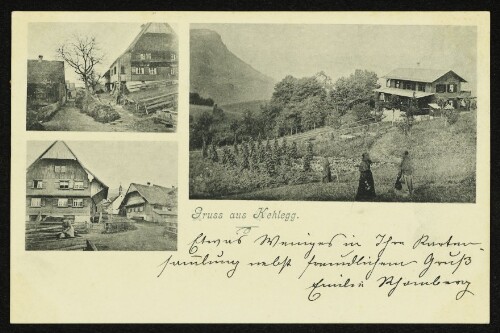 Gruss aus Kehlegg.
Etwas Weniges in Ihre Karten-
sammlung nebst freundlichem Gruß
Emilie Rhomberg